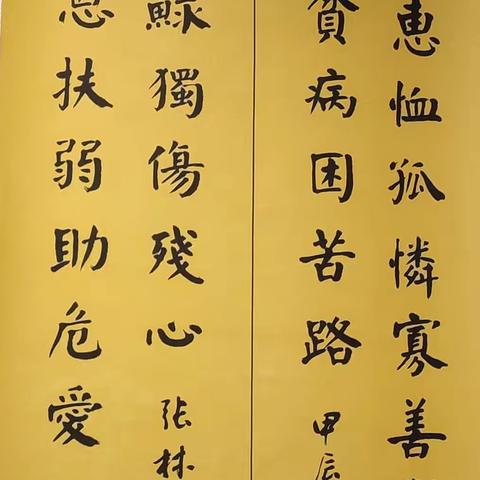 惠恤孤憐寡善
貧病困苦路
甲辰
鰥獨傷殘心
张林
扶弱助危愛